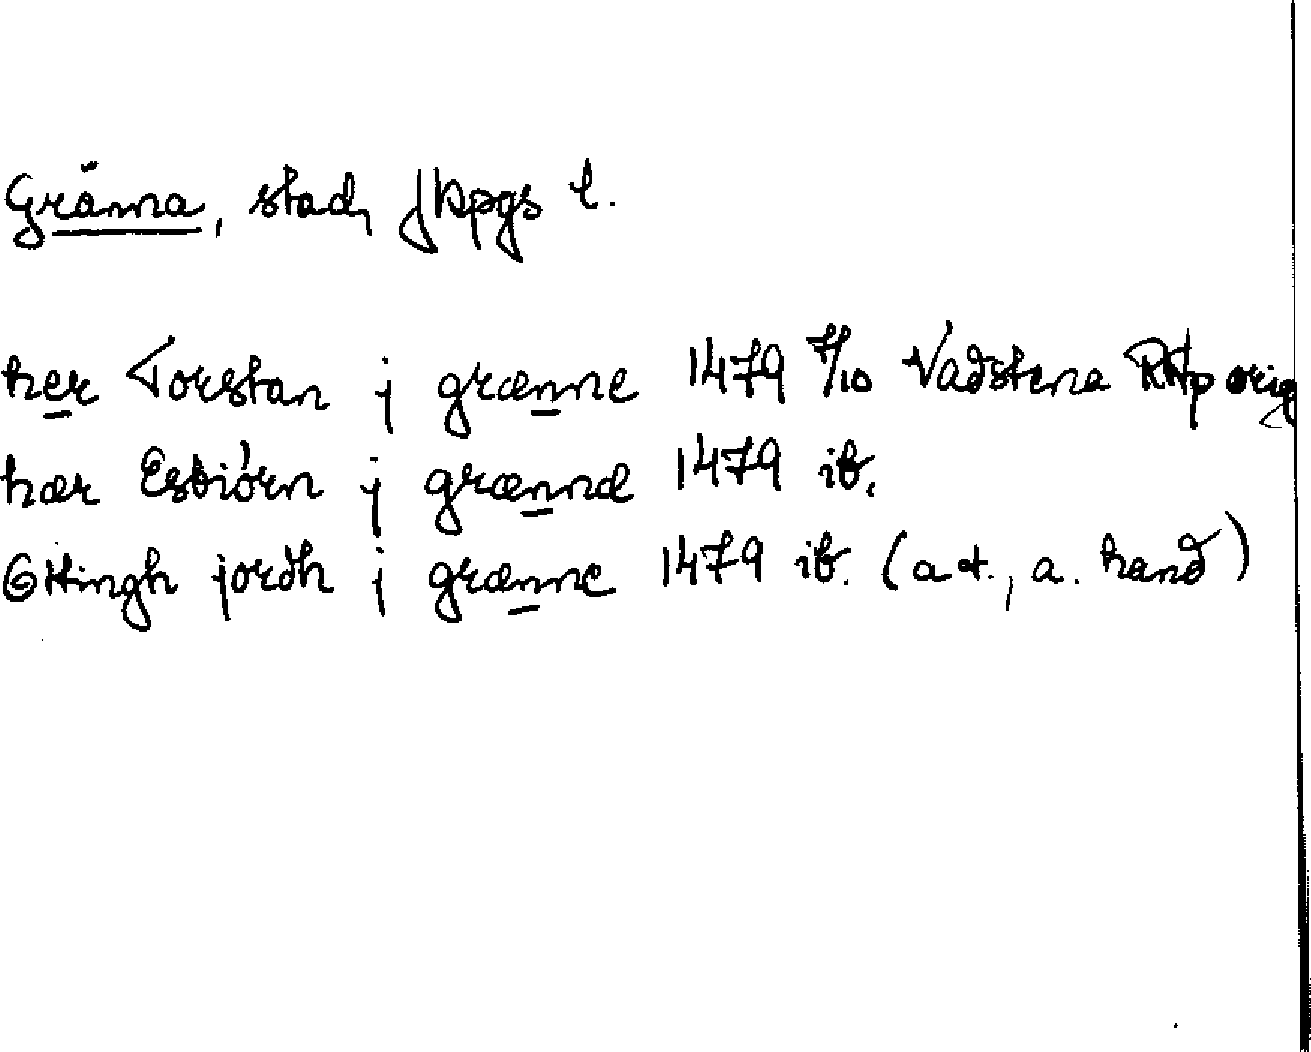 Gränna, stad, Jkpgs l.
her Torstan j grænne 1479 7/10 Vadstena RAp orig
hær Esbiörn j grænnæ 1479 ib.
Ottingh jordh j grænne 1479 ib. (a t., a. hand)